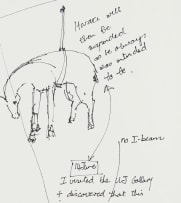 Horse will
then be
suspended
as he always
was intended
to be.
no I-beam
I visited the
Gallery
+ discovered that this